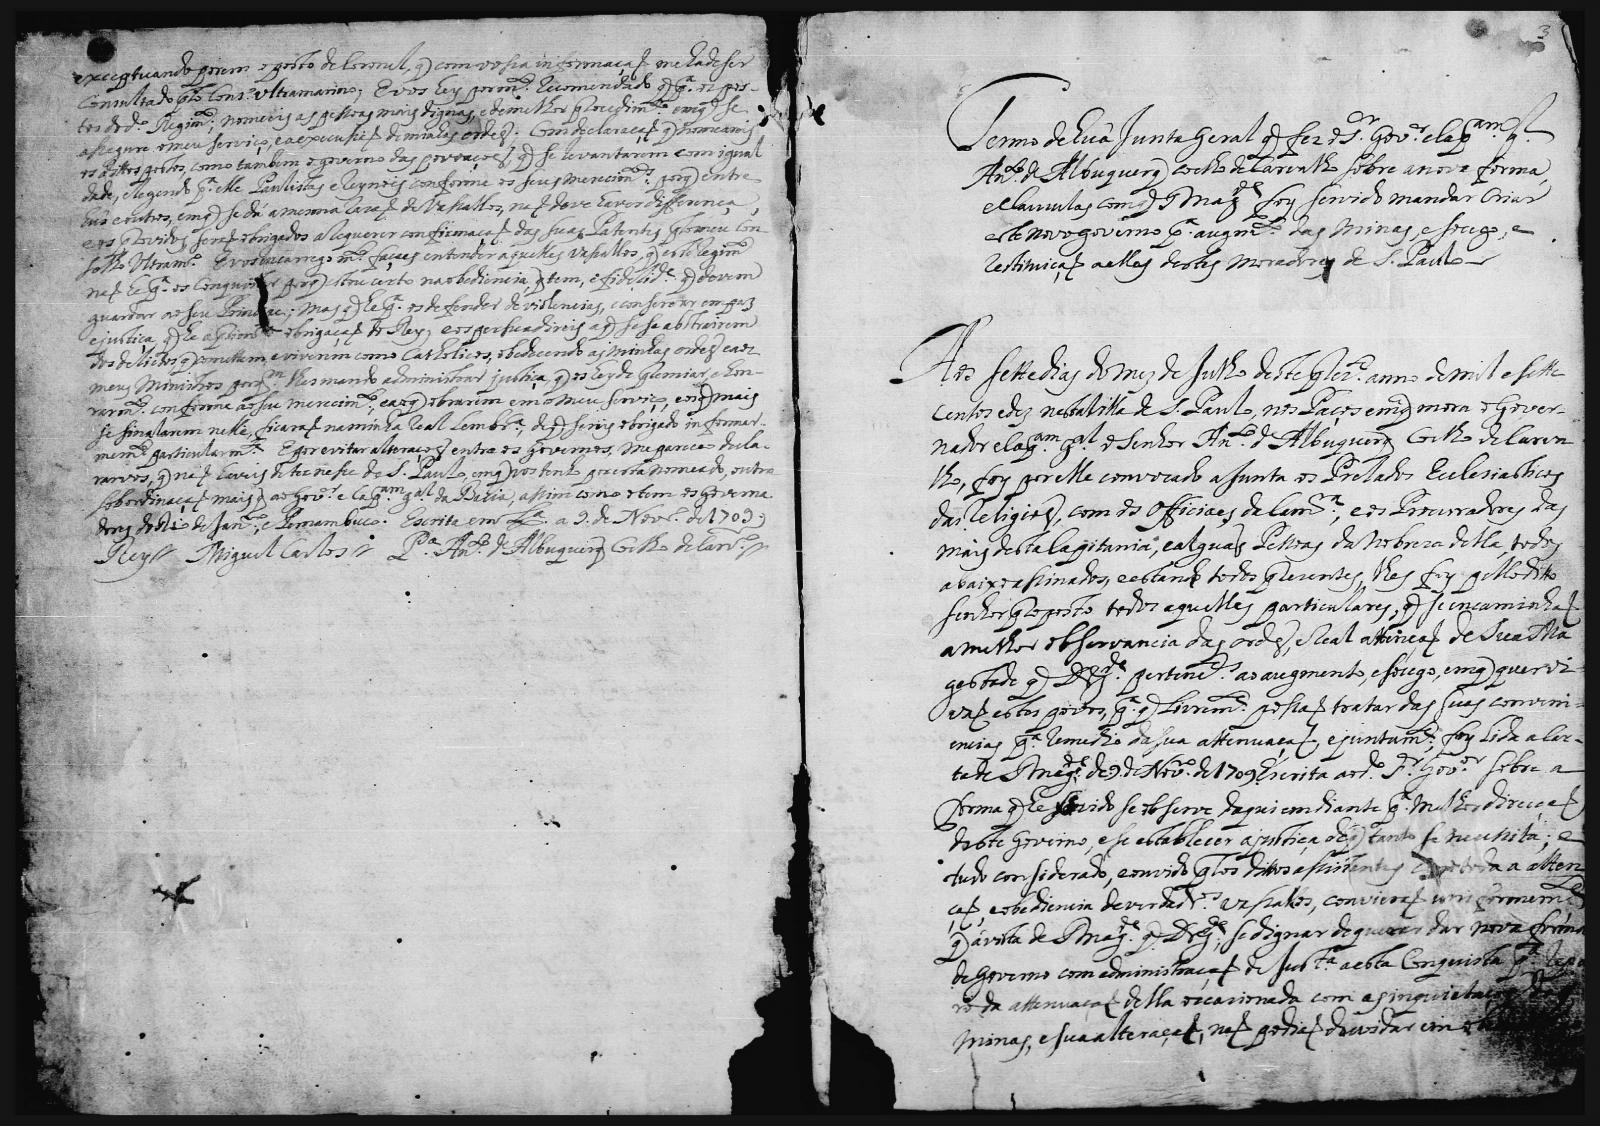 exceptuando porem o posto de Coronel, q̃ com vossa informaçaõ me ha de ser
Consultado plo Cons.º Ultramarino; E vos Hey por m.to Recomendado q̃ p.ª os pos-
tos do d.º Regim.to nomeeis as pessoas mais dignas, e de melhor procedim.to em q̃ se
assegure o meu serviço, e a execuçaõ de minhas ordeñs. Com declaraçaõ q̃ nomeareis
os dittos postos, como tambem o governo das povoações q̃ se levantarem com igual
dade, elegendo p.ª elle Paulistas e Reynois conforme os seus merecim.tos porq̃ entre
huñs e outros, em q̃ se dá a mesma razaõ de Vassallos, naõ deve haver differença,
e os providos seraõ obrigados a Requerer confirmaçaõ das suas Patentes plo meu Con
selho Ultram.º E vos encarrego m.to façaes entender aquelles Vassallos, q̃ este Regim.to
naõ he p.ª os conquistar porq̃ estou certo na obediencia, q̃ tem, e fidelid.e q̃ devem
guardar ao seu Principe; mas q̃ he p.ª os defender de violencias, e conservar em paz
e justiça, q̃ he a prim.ra obrigaçaõ do Rey, e os persuadireis a q̃ se abstrairem
dos delictos q̃ comettem e viverem como Catholicos, obedecendo as minhas ordeñs e aoz
meus Ministros por q.m lhes mando administrar justiça, q̃ os hey de premiar, e hon-
rar m.to conforme ao seu merecim.to, e ao q̃ obrarem em o meu serviço, e os q̃ mais
se sinalarem nelle, ficaraõ na minha Real Lembr.ça, de q̃ sereis obrigado informar-
me m.to particularm.te. E por evitar alteraçoeñs entre os governos, me pareceo decla-
rarvos, q̃ naõ haveis de ter nesse de S. Paulo, em q̃ vos tenho por esta nomeado, outra
sobordinaçaõ mais q̃ ao Gov.or e Cap.am g.al da Bahia, assim como o tem os Governa
dores do Rio de Jan.ro, e Pernambuco. Escrita em Lx.ª a 9. de Nov.ro de 1709
Rey// Miguel Carlos// P.ª An.to de Albuquerq̃ Coelho de Carv.º//
3
Termo de huã Junta Geral q̃ fez o S.r Gov.or e Cap.am g.l
An.to de Albuquerq̃ Coelho de Carvalho sobre a nova forma,
e Clauzulas com q̃ S Mag.de foy servido mandar criar
este novo governo p.ª augm.to das Minas, e socego, e
restituiçaõ a elles destes moradores de S. Paulo
Aos sette dias do mez de Julho deste prez.te anno de mil e sette
centos e dez nesta Villa de S. Paulo, nos Paços em q̃ mora o Gover-
nador e Cap.am g.al o Senhor An.to de Albuquerq̃ Coelho de Carva
lho, foy por elle convocado a Junta os Prelados Ecclesiasticos
das religioẽs, com os Officiaes da Cam.ra, e os Procuradores das
mais desta Capitania, e alguãs Pessoas da Nobreza della, todos
abaixo assinados, e estando todos prezentes, lhes foy pello ditto
Senhor proposto todos aquelles particulares, q̃ se encaminhaõ
a melhor observancia das ordeñs, e Real attençaõ de Sua Ma
gestade q̃ D.s g.de pertenc.tes ao augmento, e socego, em q̃ quer vi
vaõ estes povos, p.ª q̃ Livrem.te possaõ tratar das suas conveni-
encias p.ª remedio da sua attenuaçaõ, e juntam.te foy lida a Car-
ta de S Mag.de de 9. de Nov.ro de 1709 Escrita ao d.º S.r Gov.or sobre a
forma q̃ he servido se observe daqui em diante p.ª melhor direcçaõ
deste Governo, e se establecer a justiça de q̃ tanto se necessita; e
tudo considerado, e ouvido plos dittos assistentes com toda a atten
çaõ, e obediencia de verdad.ros vassallos, convieraõ uniformem.te
q̃ á vista de S Mag.de q̃ D.s g.de, se dignar de querer dar nova forma
de Governo com administraçaõ de Just.ça a esta Conquista p.ª repa
ro da attenuaçaõ della occasionada com as inquietaçoẽs das
Minas, e sua alteraçaõ, naõ podiaõ duvidar em